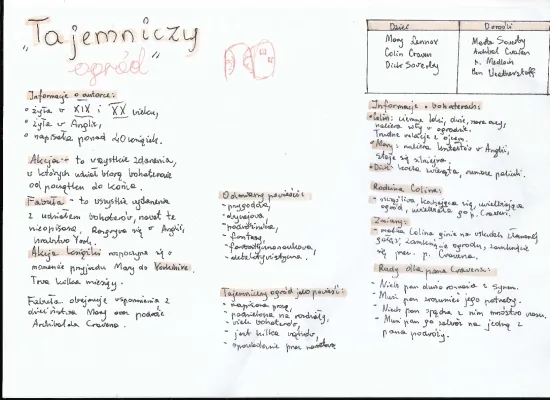 "Tajemniczy
ogród"
Informacje o autorce:
• żyła w XIX i XX wieku,
• żyła w Anglii,
• napisała ponad 40 książek.
Akcja - to wszystkie zdarzenia,
w których udział biorą bohaterowie
od początku do końca.
Fabuła - to wszystkie wydarzenia
z udziałem bohaterów, nawet te
nieopisane. Rozgrywa się w Anglii,
hrabstwo York.
Akcja książki rozpoczyna się w
momencie przyjazdu Mary do Yorkshire.
Trwa kilka miesięcy.
Fabuła obejmuje wspomnienia z
dzieciństwa Mary oraz podróże
Archibalda Cravena.
Odmiany powieści:
- przygodowa,
- obyczajowa,
- podróżnicza,
- fantasy,
- fantastycznonaukowa,
- detektywistyczna.
Tajemniczy ogród jako powieść:
- napisana prozą,
- podzielona na rozdziały,
- wielu bohaterów,
- jest kilka wątków,
- opowiedziana przez narratora
Dzieci
Mary Lennox
Colin Craven
Dick Sowerby
Dorośli
Marta Sowerby
Archibald Craven
p. Medlock
Ben Weatherstaff
Informacje o bohaterach:
• Colin: ciemne loki, duże, szare oczy,
nabiera siły w ogrodzie.
Trudne relacje z ojcem.
• Mary: nabiera kształtów w Anglii,
staje się silniejsza.
• Dick: rumiane policzki.
Rodzina Colina:
- szczęśliwa, kochająca się, uwielbiająca
ogród, p. Craven.
Zmiany:
- matka Colina ginie na skutek złamanej
gałęzi, zamknięcie ogrodu, zamknięcie
się przez p. Cravena.
Rady dla pana Cravena:
- Niech pan dużo rozmawia z synem.
- Musi pan zrozumieć jego potrzeby.
- Niech pan spędza z nim mnóstwo czasu.
- Musi pan go zabrać na jedną z
pana podróży.